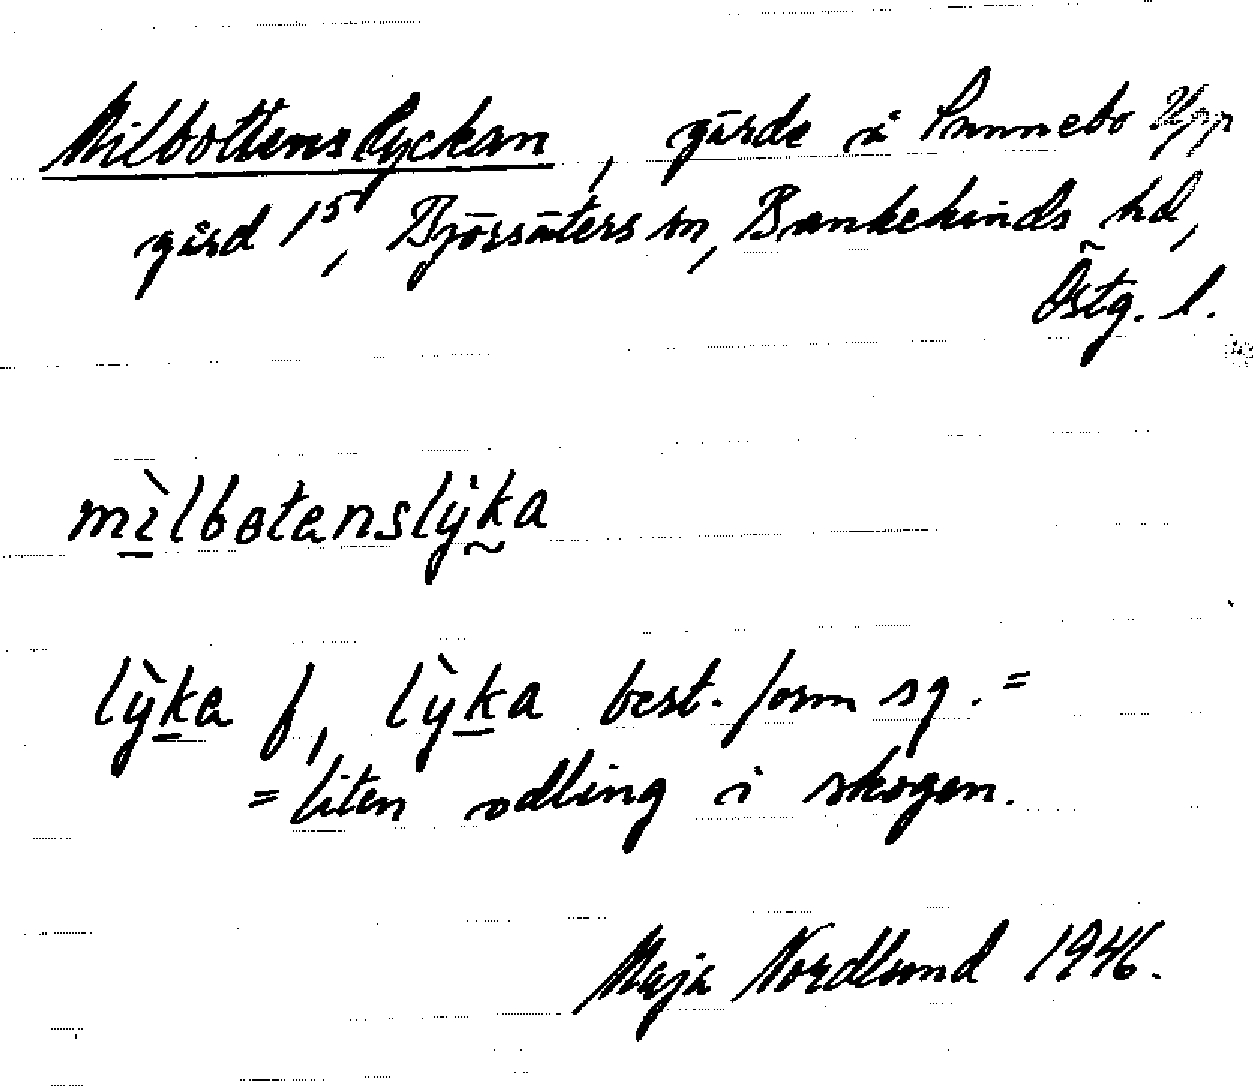 Milbottenslyckan, gärde i Sunnebo Upp
gård 1⁵, Björsäters sn, Bankekinds hd,
Östg. l.
mìlbotenslyka
lỳka f, lỳka best. form sg. =
= liten odling i skogen.
Maja Nordlund 1946.